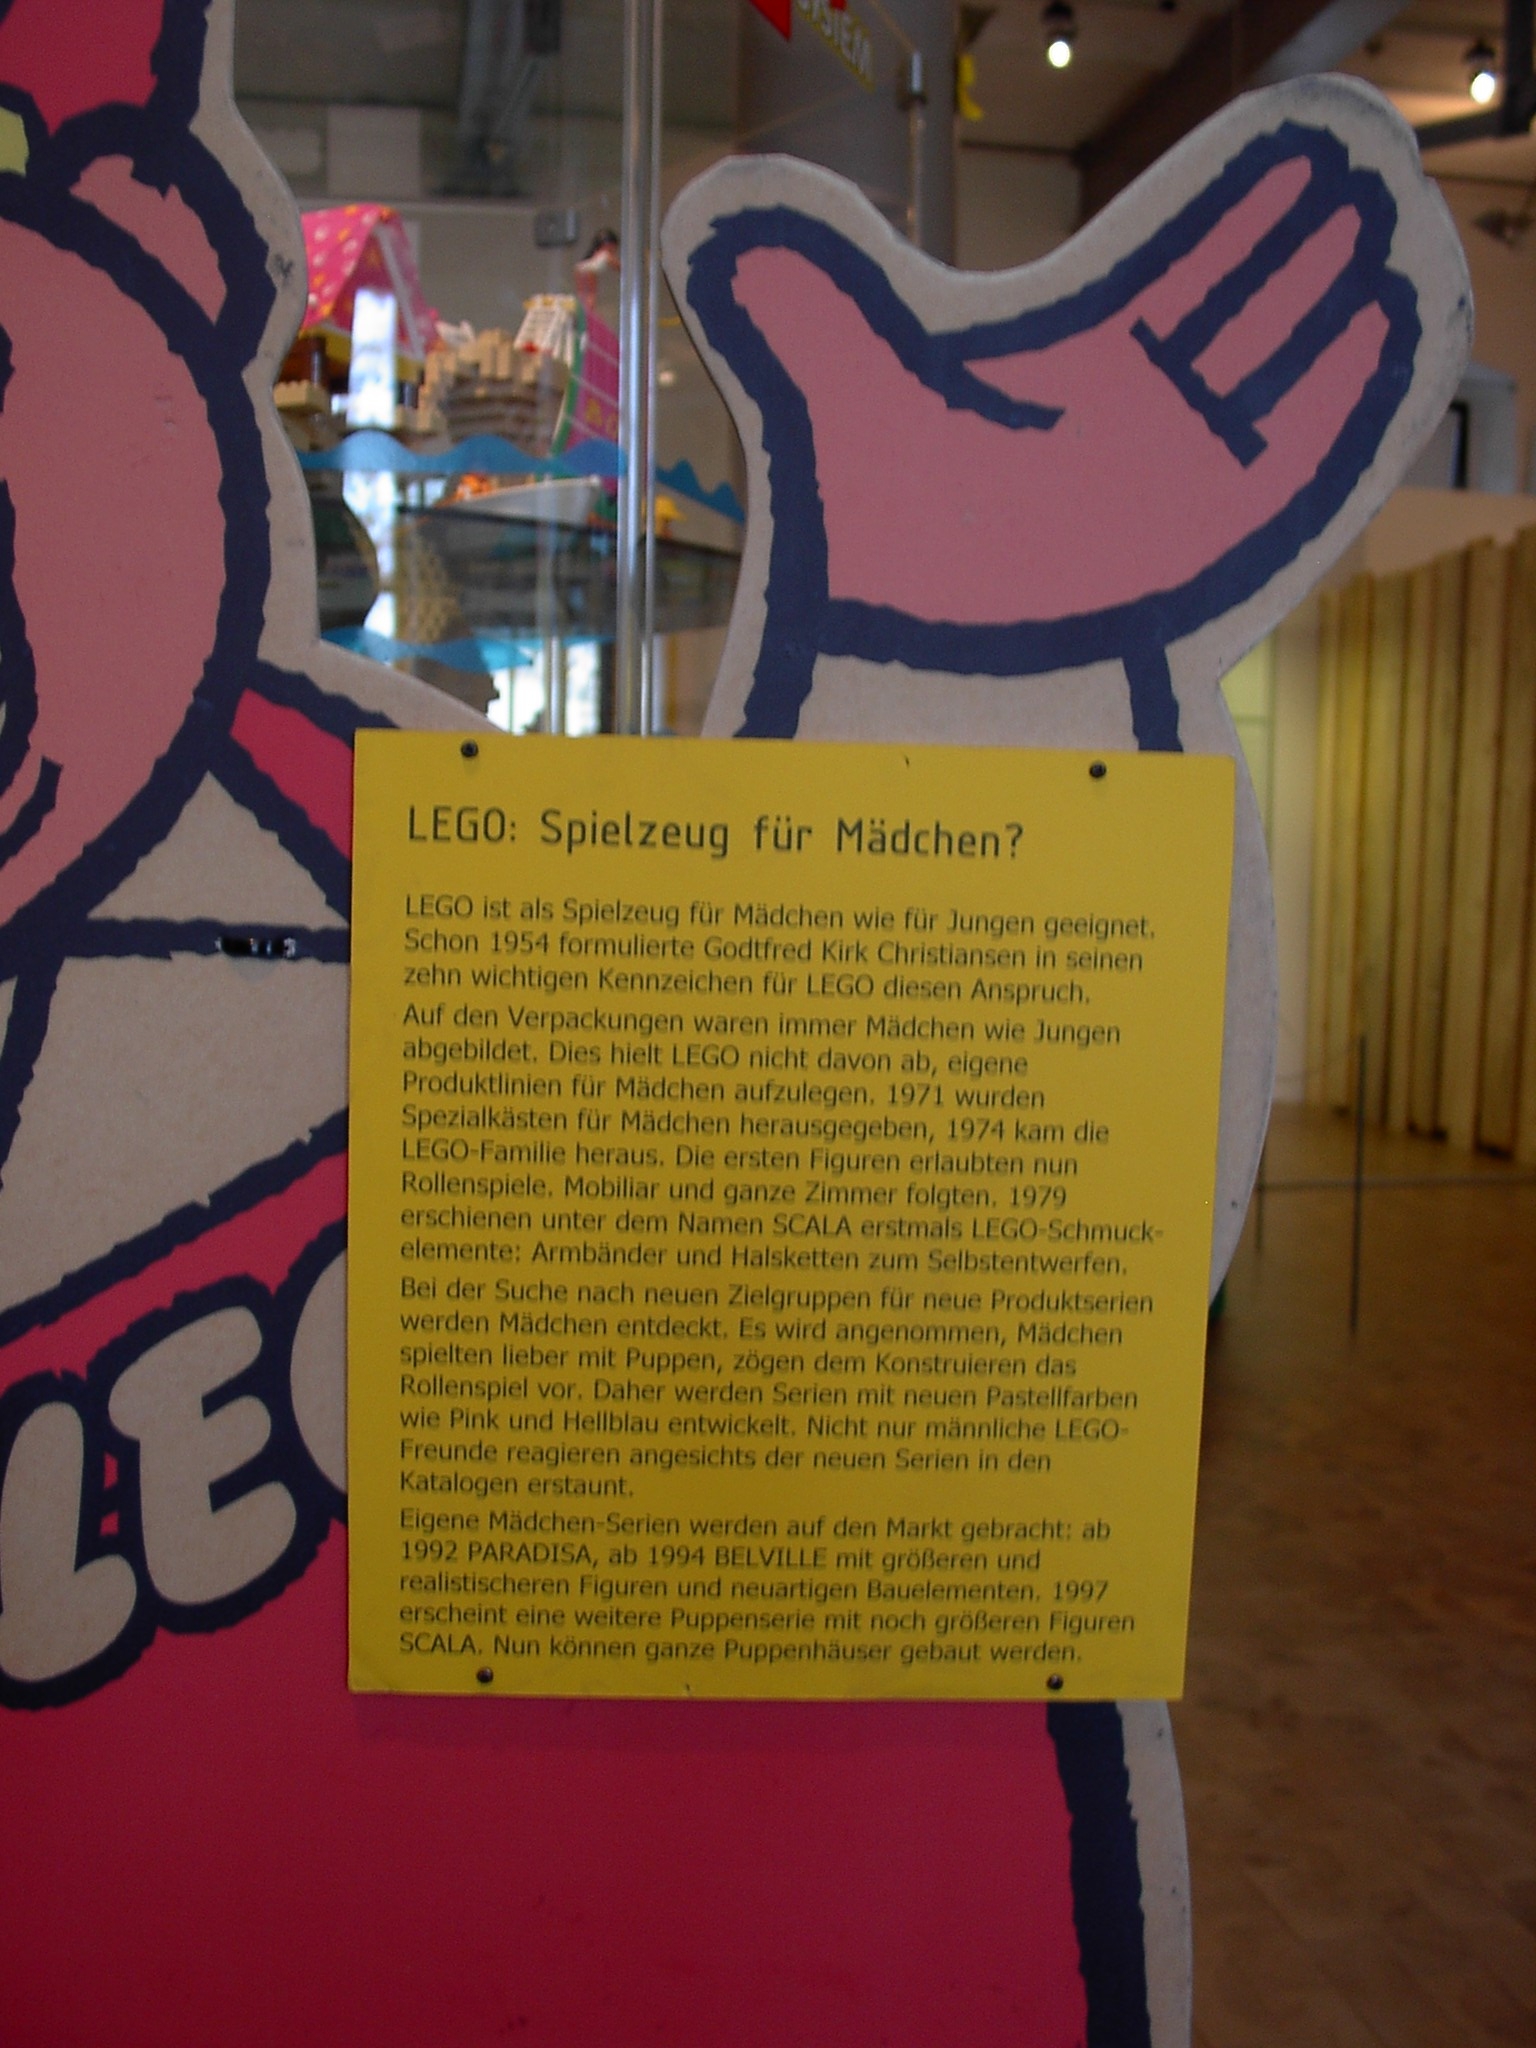 SYSTEM
LEGO: Spielzeug für Mädchen?
LEGO ist als Spielzeug für Mädchen wie für Jungen geeignet.
Schon 1954 formulierte Godtfred Kirk Christiansen in seinen
zehn wichtigen Kennzeichen für LEGO diesen Anspruch.
Auf den Verpackungen waren immer Mädchen wie Jungen
abgebildet. Dies hielt LEGO nicht davon ab, eigene
Produktlinien für Mädchen aufzulegen. 1971 wurden
Spezialkästen für Mädchen herausgegeben, 1974 kam die
LEGO-Familie heraus. Die ersten Figuren erlaubten nun
Rollenspiele. Mobiliar und ganze Zimmer folgten. 1979
erschienen unter dem Namen SCALA erstmals LEGO-Schmuck-
elemente: Armbänder und Halsketten zum Selbstentwerfen.
Bei der Suche nach neuen Zielgruppen für neue Produktserien
werden Mädchen entdeckt. Es wird angenommen, Mädchen
spielten lieber mit Puppen, zögen dem Konstruieren das
Rollenspiel vor. Daher werden Serien mit neuen Pastellfarben
wie Pink und Hellblau entwickelt. Nicht nur männliche LEGO-
Freunde reagieren angesichts der neuen Serien in den
Katalogen erstaunt.
Eigene Mädchen-Serien werden auf den Markt gebracht: ab
1992 PARADISA, ab 1994 BELVILLE mit größeren und
realistischeren Figuren und neuartigen Bauelementen. 1997
erscheint eine weitere Puppenserie mit noch größeren Figuren
SCALA. Nun können ganze Puppenhäuser gebaut werden.
LEG